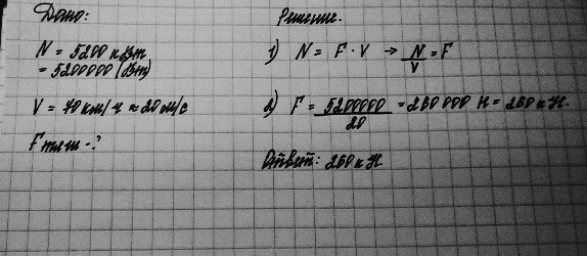 Дано:
N = 5200 кВт
= 5200000 (Вт)
V = 70 км/ч ≈ 20 м/с
F тяги - ?
Решение.
1) N = F · V → N/V = F
2) F = 5200000/20 = 260 000 Н = 260 кН.
Ответ: 260 кН